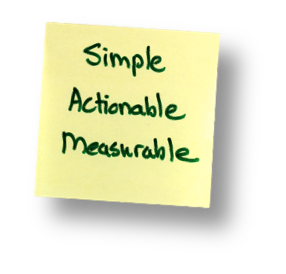 Simple
Actionable
Measurable